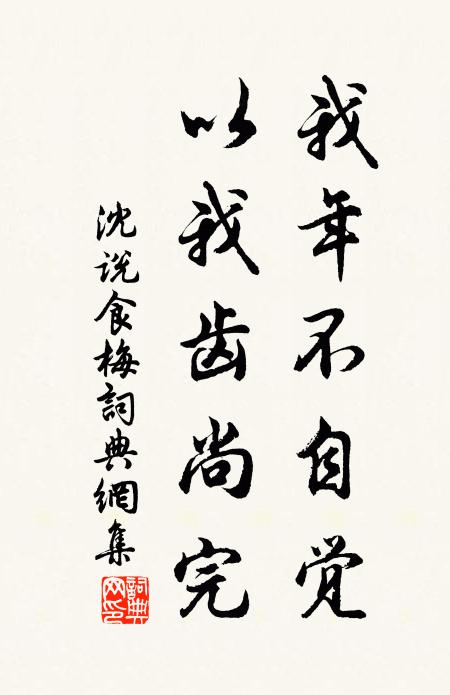 我年不自觉
以我齿尚完
沈说食梅詞典網集
詞典网印